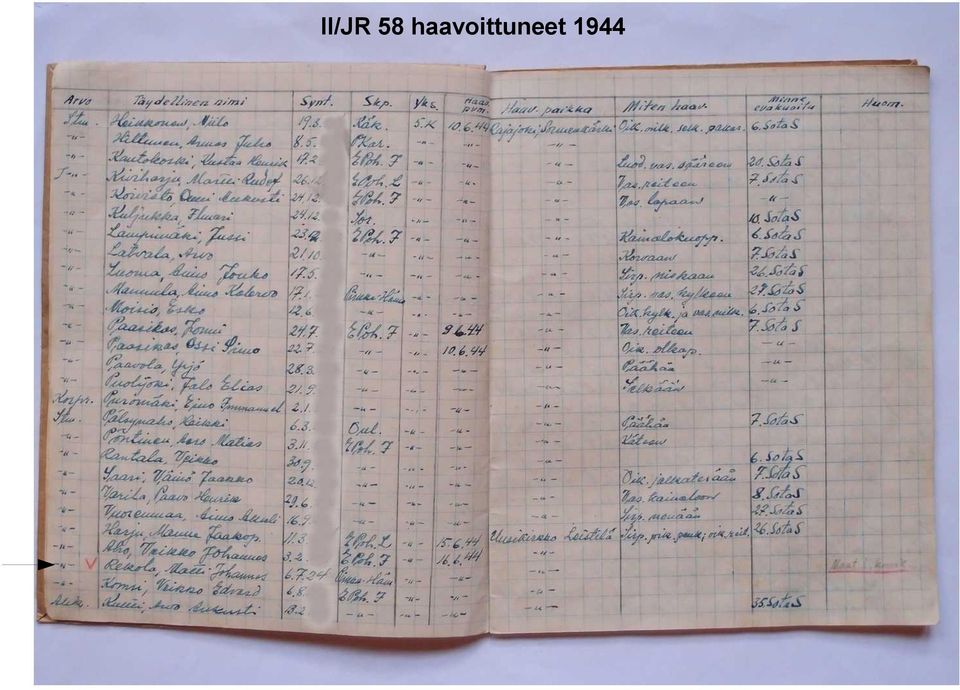 II/JR 58 haavoittuneet 1944
Arvo Täydellinen nimi Synt. Skp. Yks. Haav. pvm. Haav. paikka Miten haav. Minne evakuoitu Huom.
Stm. Heikkonen, Niilo 19.3. Räk. 5.K 10.6.44 Rajajoki, Oik. 6.SotaS
-"- Hiltunen, Armas Juho 8.5. PKar. -"- -"- -"-
-"- Kautokoski, Kustaa Henrik 17.2 EPoh.F -"- -"- -"- Luod. vas. sääreen 20.SotaS
-"- Kiviharju, Martti 26.12. EPoh.L -"- -"- -"- Vas. reiteen 7.SotaS
-"- Koivisto, Onni 24.12. EPoh.F -"- -"- -"- Vas. lapaan -"-
-"- Kuljukka, Ilmari 24.12. -"- -"- -"- 10.SotaS
-"- Lampimäki, Jussi 23.12 EPoh.F -"- -"- -"- Kainalokuopp. 6.SotaS
-"- Latvala, Arvo 21.10. -"- -"- -"- -"- Korvaan 7.SotaS
-"- Luoma, Jouko 17.5. -"- -"- -"- -"- Sirp. niskaan 26.SotaS
-"- Mannula, Aimo Kalervo 17.1. -"- -"- -"- Sirp. vas. kylkeen 27.SotaS
-"- Moisio, Esko 12.6. -"- -"- -"- -"- Oik. kylk. ja 6.SotaS
-"- Paasikas, 24.7. EPoh.F -"- 9.6.44 -"- Vas. reiteen 7.SotaS
-"- Paasikas, Ossi 22.7. -"- -"- 10.6.44 -"- Oik. olkap. -"-
-"- Paavola, Yrjö 28.3. -"- -"- -"- -"- Päähän -"-
-"- Puolijoki, Jalo Elias 21.9. -"- -"- -"- -"- Selkään -"-
Korpr. Puromäki, Eino Immanuel 2.1. -"- -"- -"- -"-
Stm. Kaikki 6.3. Oul. -"- -"- -"- Päähän 7.SotaS
-"- Pöntinen, Matias 3.11. EPoh.F -"- -"- -"- Käteen
-"- Rantala, Veikko 30.9. -"- -"- -"- -"- 6.SotaS
-"- Saari, Väinö Jaakko 20.12. -"- -"- -"- -"- Oik. jalkaterään 7.SotaS
-"- Varila, Paavo Henrik 29.6. -"- -"- -"- -"- Vas. kainaloon 8.SotaS
-"- Vuorenmaa, Aimo 16.9. -"- -"- -"- -"- Sirp. 27.SotaS
-"- Harju, Jaakop. 11.3. EPoh.L -"- 15.6.44 Uusikirkko Leistilä Sirp. 26.SotaS
-"- Aho, Veikko Johannes 3.2. EPoh.F -"- 16.6.44 -"-
-"- V Rekola, Matti Johannes 6.7.24 -"- -"- -"-
-"- Komsi, Veikko Edvard 6.8. EPoh.F -"- -"- -"-
Alik. Arvo 13.2 -"- -"- -"- -"- 35.SotaS